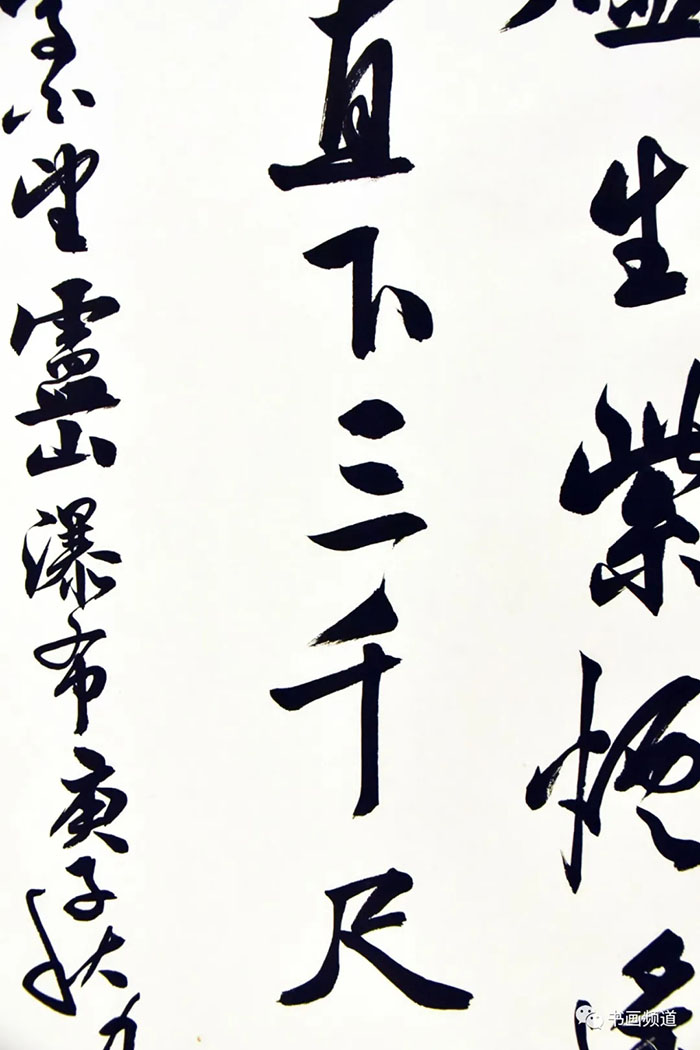 生紫煙
直下三千尺
望廬山瀑布庚子秋
书画频道